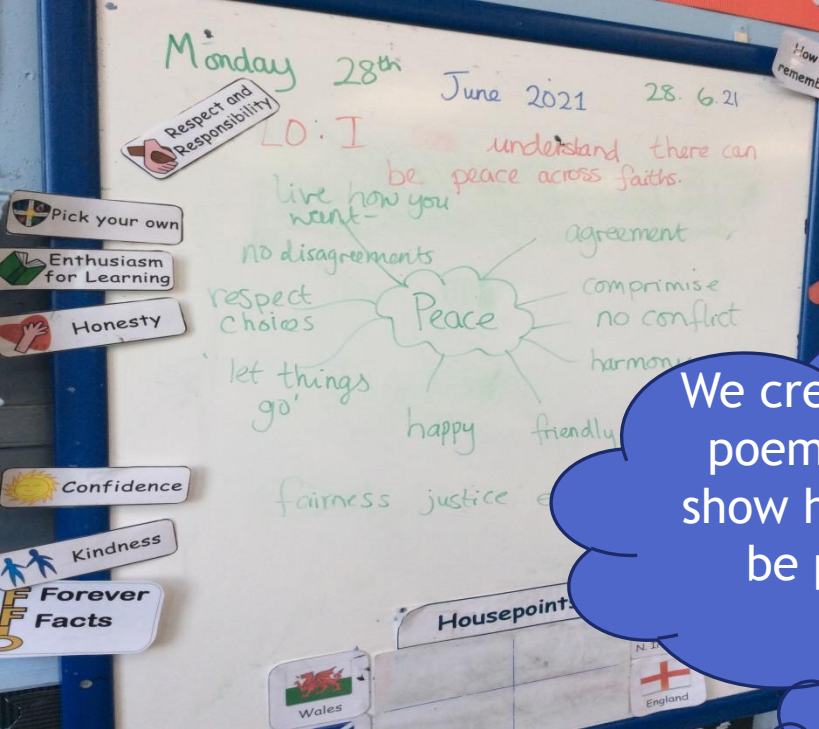 Monday 28th June 2021 28. 6. 21
How
Respect and
Responsibility
LO: I understand there can
be peace across faiths.
live how you
want
no disagreements
respect
choices
'let things
go'
Peace
agreement
comprimise
no conflict
happy
friendly
fairness justice
Pick your own
Enthusiasm
for Learning
Honesty
Confidence
Kindness
Forever
Facts
Housepoints
Wales
England
We
show
be